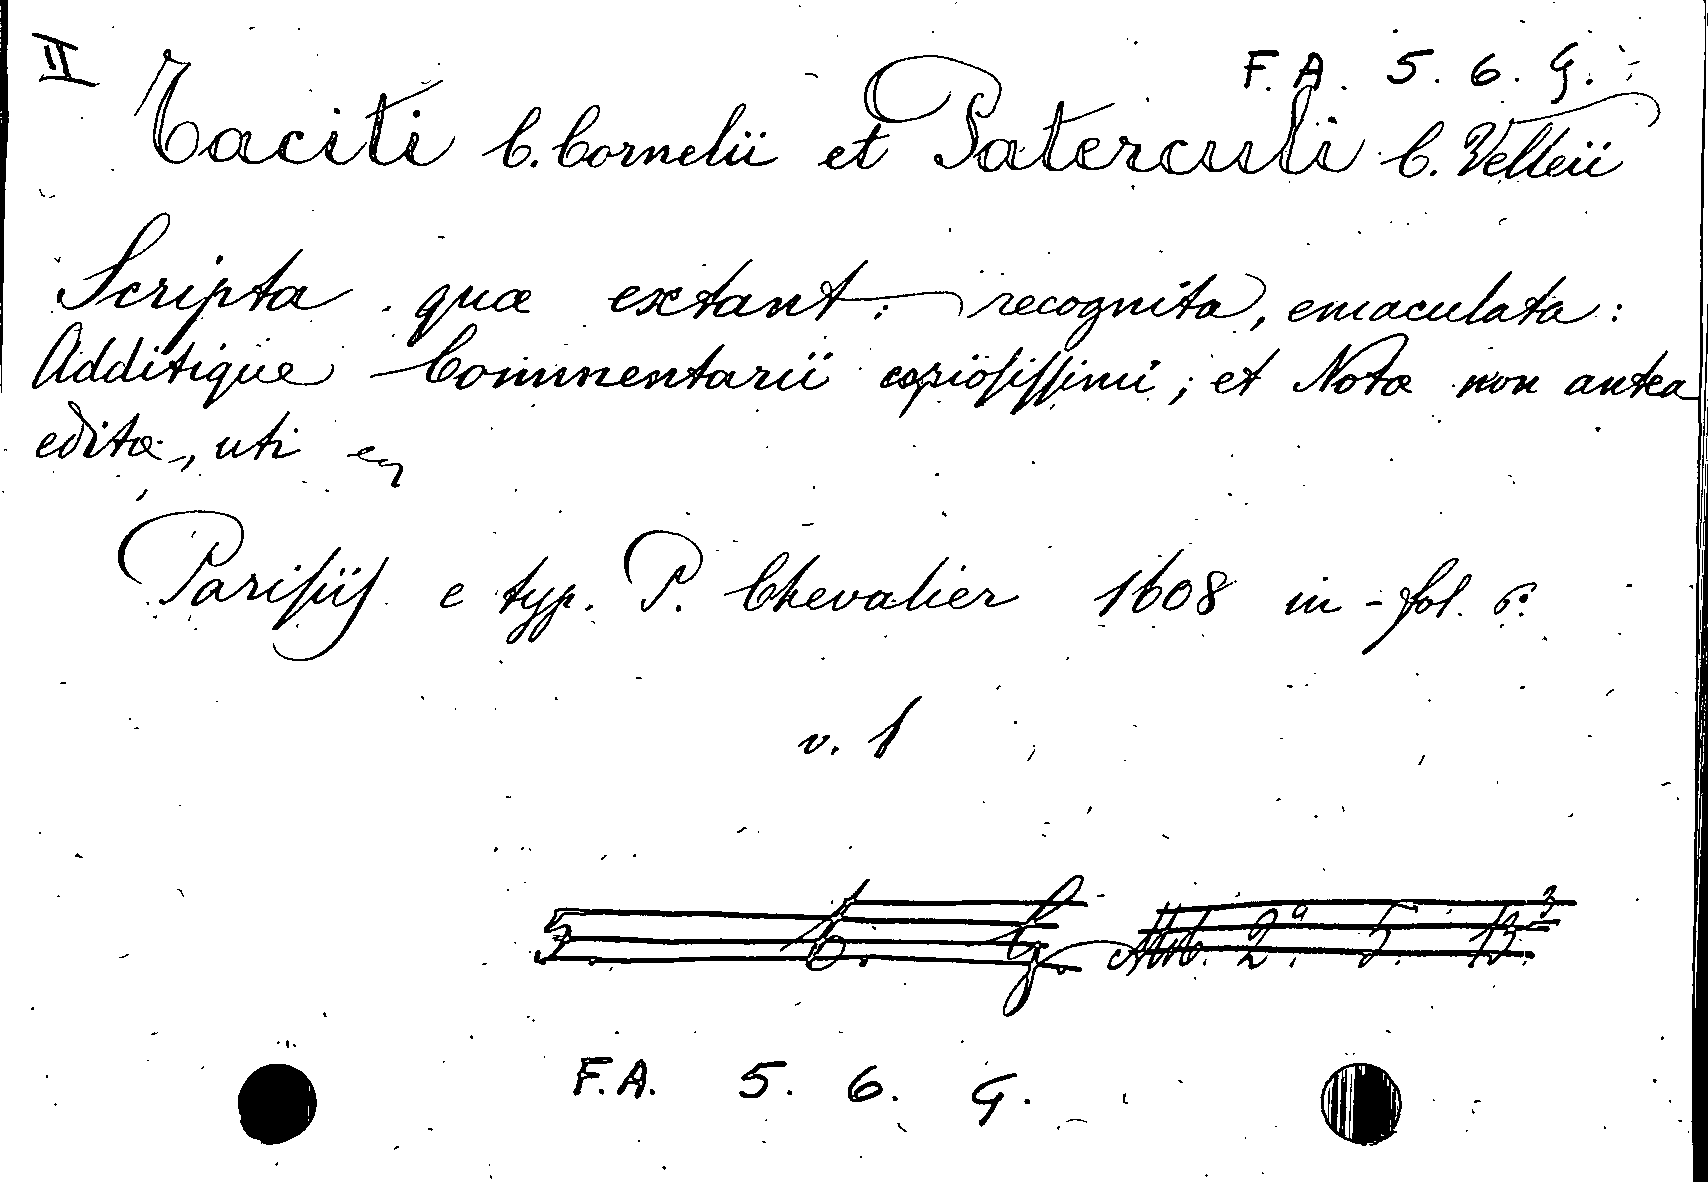 II
F. A. 5. 6. G.
Taciti C. Cornelii et Paterculi C. Velleii
Scripta quæ extant: recognita, emaculata:
Additique Commentarii copiosissimi; et Notæ non antea
editæ, uti
Parisiis e typ. P. Chevalier 1608 in-fol.
v. 1
5. 6. G. 2ª. 5. 13.
F.A. 5. 6. G.